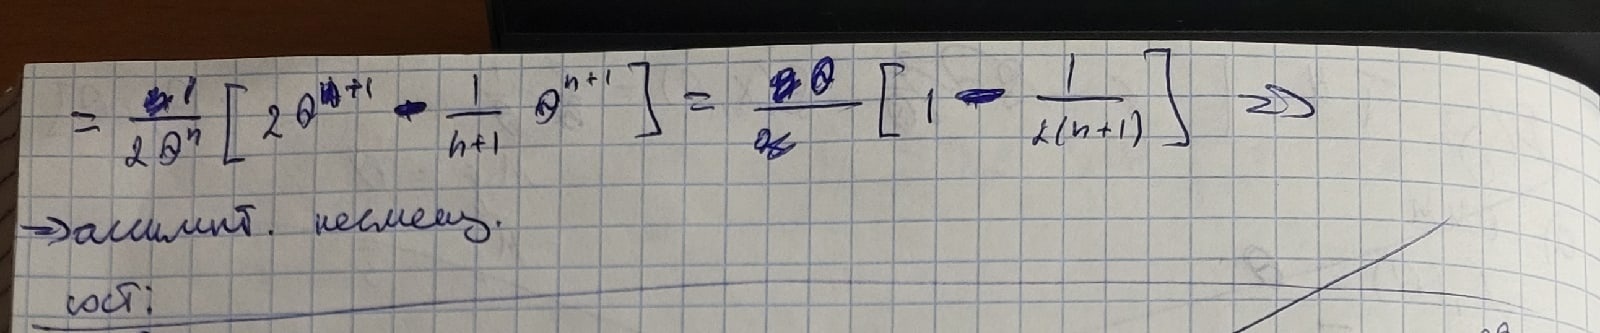 = 1/(2θⁿ) [2θⁿ⁺¹ - 1/(n+1) θⁿ⁺¹] = θ [1 - 1/(2(n+1))] =>
=> ассимпт. несмещ.
сост: